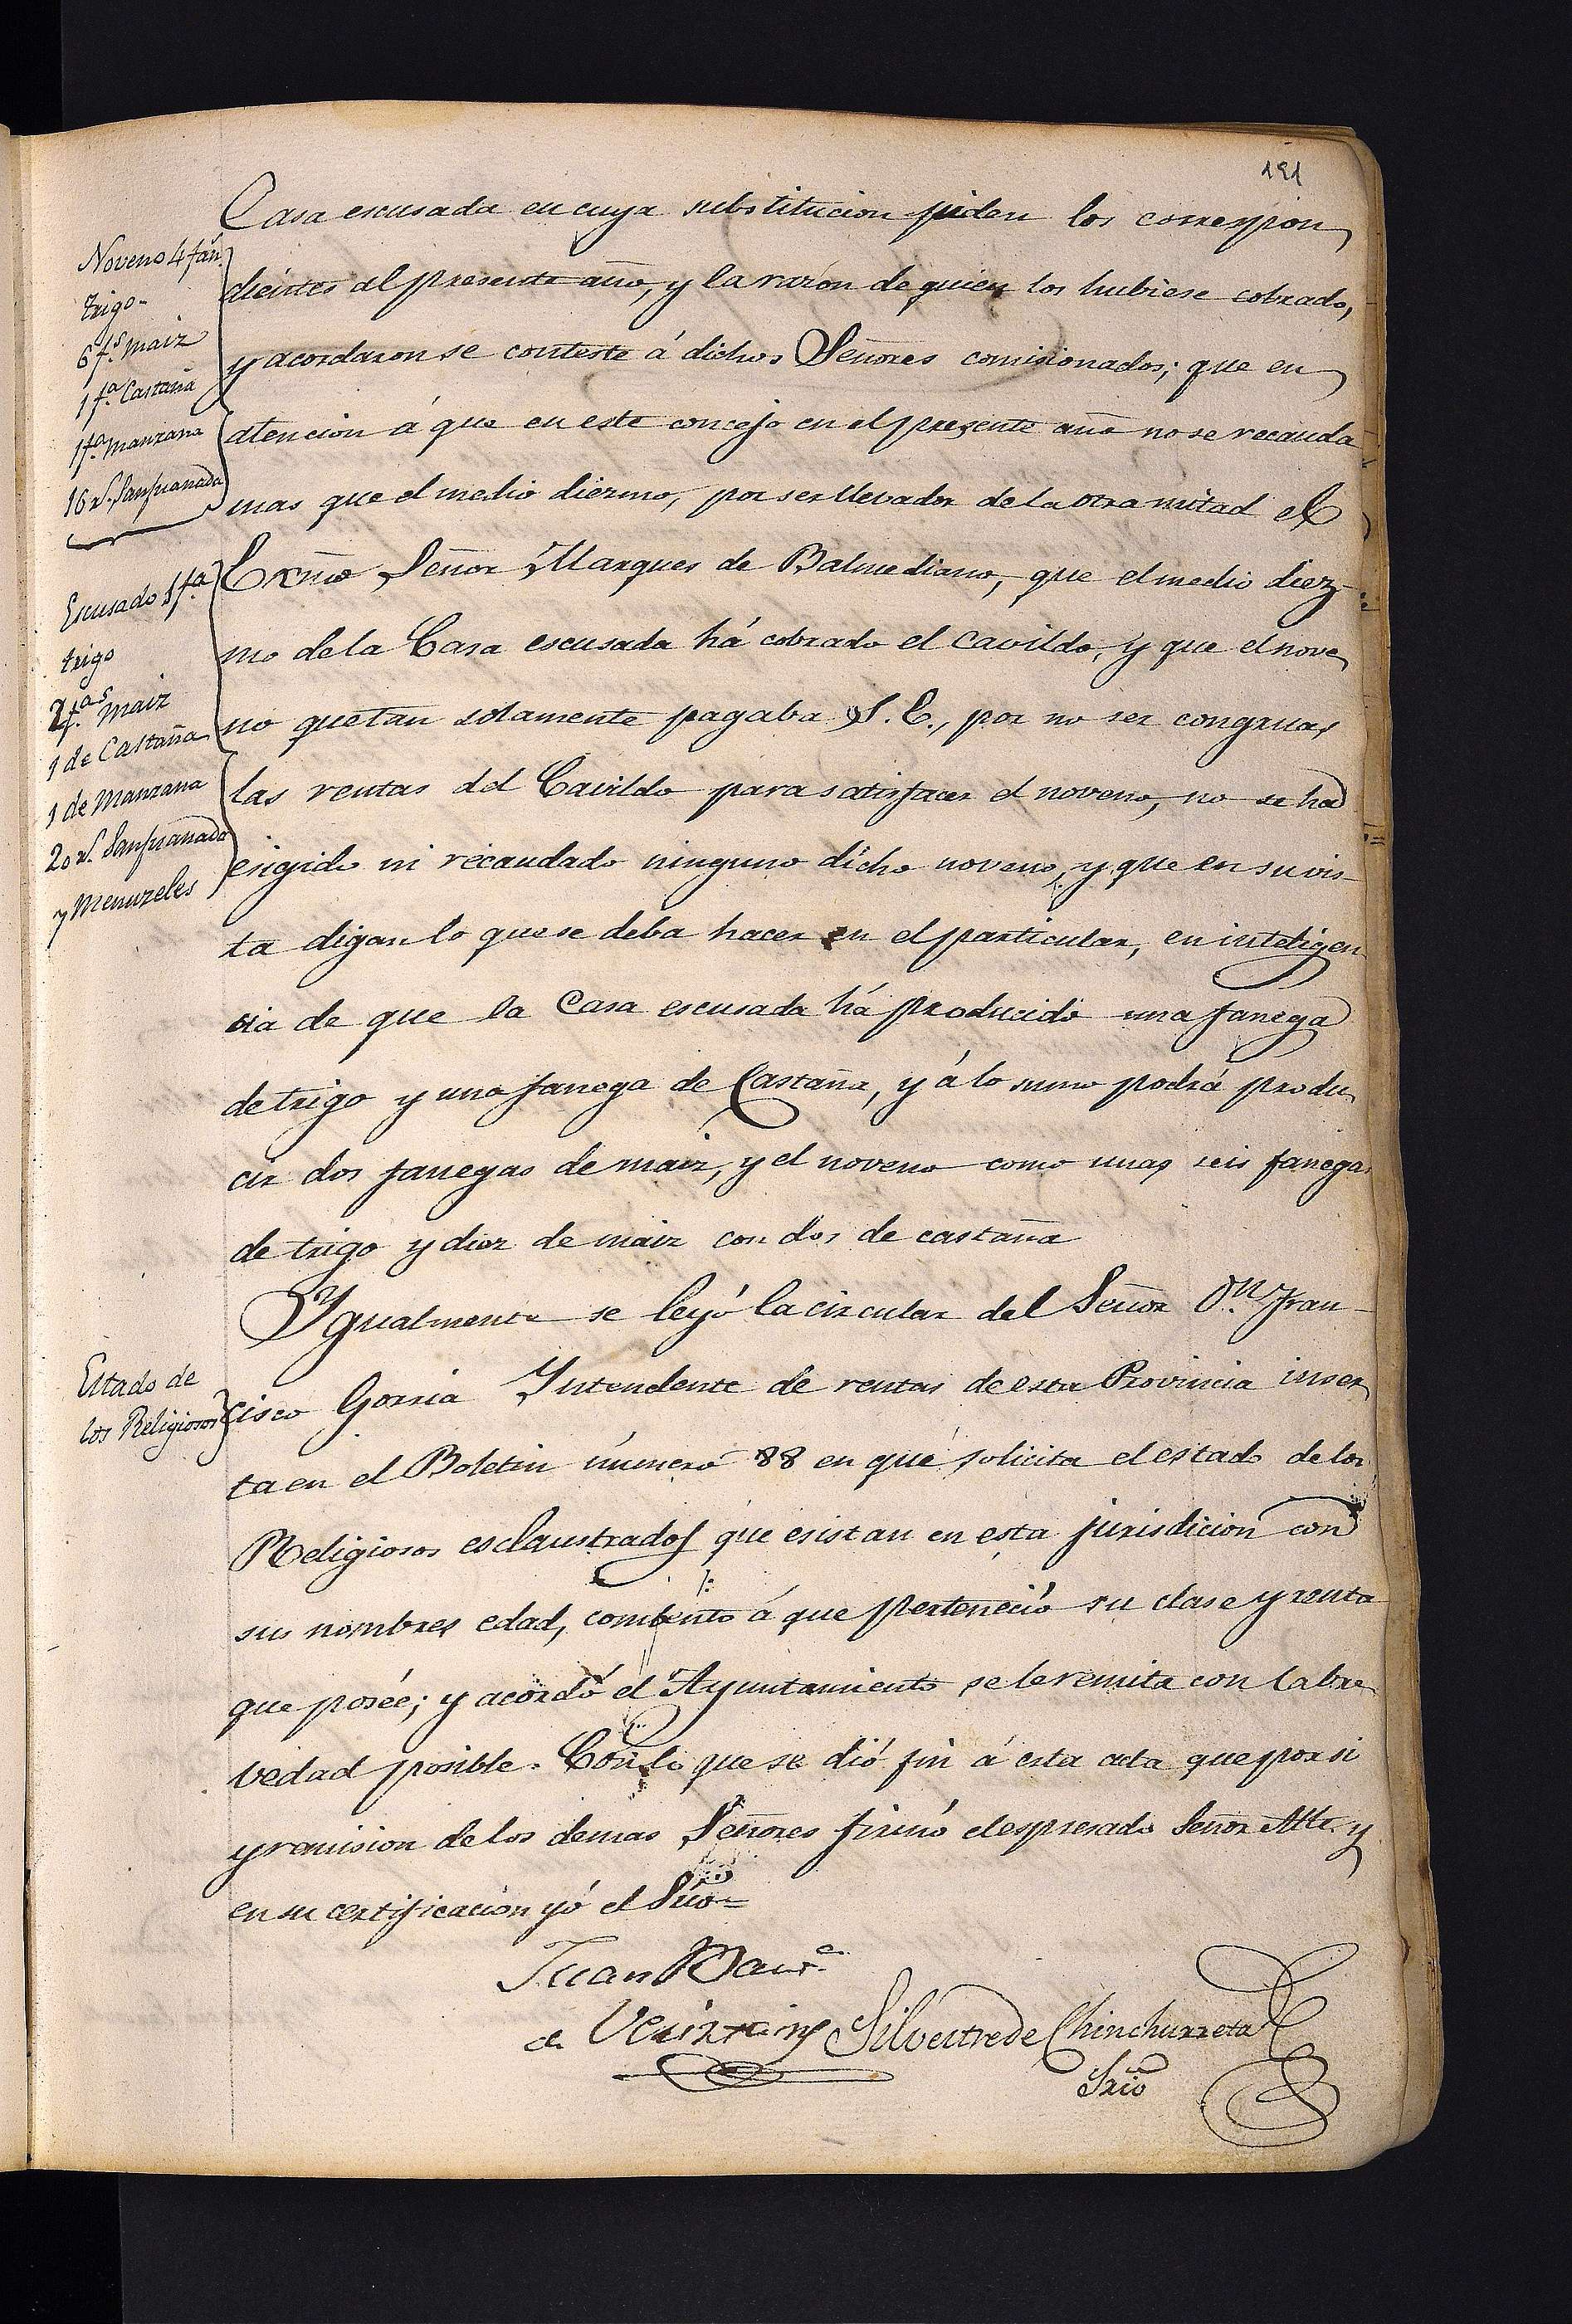 191
Casa escusada en cuya substitucion piden los correspon
dientes al presente año, y la razón de quien los hubiese cobrado,
y acordaron se conteste á dichos Señores comisionados; que en
atencion á que en este concejo en el presente año no se recauda
mas que el medio diezmo, por ser llevador de la otra mitad el
Exmo Señor Marques de Balmediano, que el medio diez-
mo de la Casa escusada há cobrado el Cavildo, y que el nove
no que tan solamente pagaba S. E., por no ser congruas
las rentas del Cavildo para satisfacer el noveno, no se ha
esigido ni recaudado ninguno dicho noveno, y que en su vis-
ta digan lo que se deba hacer en el particular, en inteligen
cia de que la Casa escusada há producido una fanega
de trigo y una fanega de Castaña, y á lo sumo podrá produ
cir dos fanegas de maiz, y el noveno como unas seis fanegas
de trigo y diez de maiz con dos de castaña
Ygualmente se leyó la circular del Señor Dn. Fran-
cisco Gorria Yntendente de rentas de esta Provincia inser
ta en el Boletin número 88 en que solicita el estado de los
Religiosos esclaustrados que esistan en esta jurisdicion con
sus nombres edad, combento á que perteneció su clase y renta
que posée; y acordó el Ayuntamiento se le remita con la bre
vedad posible. Con lo que se dió fin á esta acta que por si
y remision de los demas Señores firmó el espresado Señor Alle. y
en su certificacion yó el Srio=
Noveno 4 fan.
trigo-
6 fs. maiz
1 fa. Castaña
1 fa. manzana
16 rs. Sanjuanada
Escusado 1 fa
trigo
2 fas maiz
1 de Castaña
1 de Manzana
20 rs. Sanjuanada
y Menuzeles
Estado de
los Religiosos
Juan Baur.a
de Silvestre de Chinchurreta
Srio